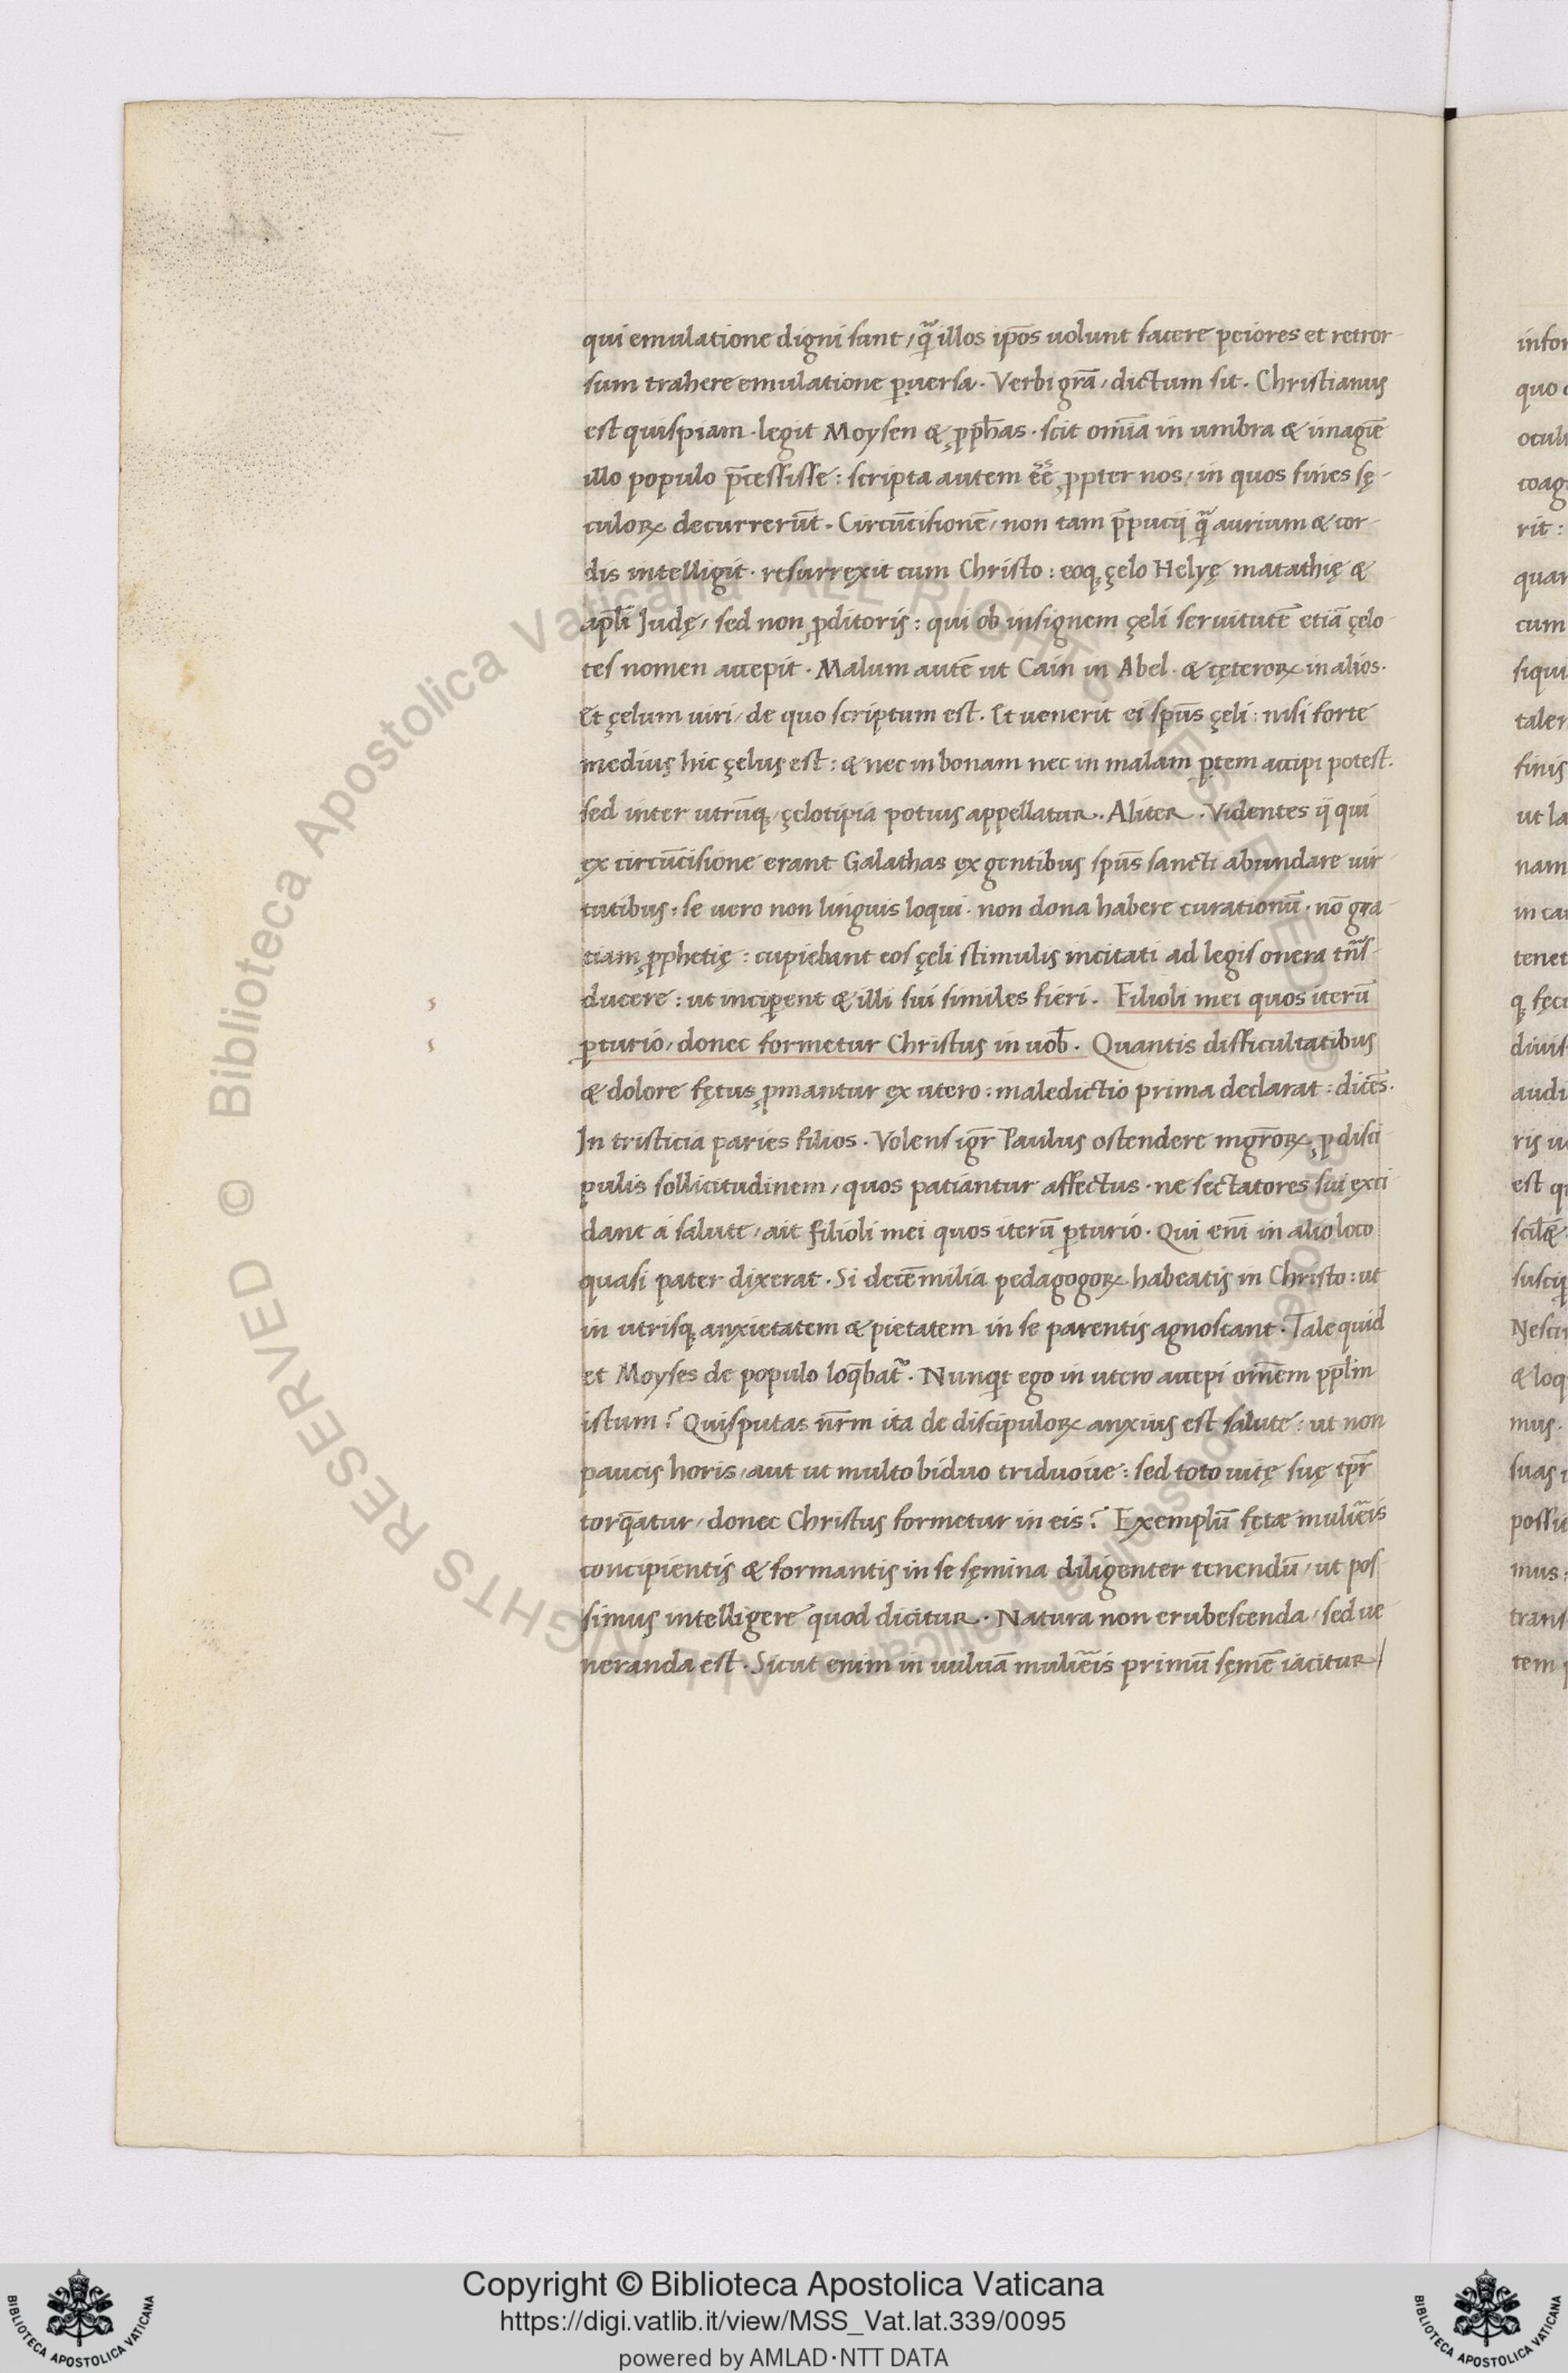 qui emulatione digni sunt / qͣ illos ip̄os uolunt facere peiores et retror-
sum trahere emulatione ꝑuersa. Verbi gr̄a / dictum sit. Christianus
est quispiam. legit Moysen & ꝓph̄as. scit om̄ia in umbra & imagīe
illo populo p̄cessisse: scripta autem eē̄ ꝓpter nos / in quos fines sę-
culoꝝ decurrerūt. Circūcisionē / non tam p̄pucij qͣ aurium & cor-
dis intelligit. resurrexit cum Christo: eoq; çelo Helyę matathię &
apl̄i Judę / sed non ꝓditoris: qui ob insignem çeli seruitutē etiā çelo-
tes nomen accepit. Malum autē ut Cain in Abel. & cęteroꝝ in alios.
Et çelum uiri / de quo scriptum est. Et uenerit ei sp̄us çeli: nisi forte
medius hic çelus est: & nec in bonam nec in malam ꝑtem accipi potest.
sed inter utrūq; / çelotipia potius appellatur. Aliter. Videntes ij qui
ex circūcisione erant Galathas ex gentibus sp̄us sancti abundare uir-
tutibus: se uero non linguis loqui. non dona habere curationū. nō gra-
tiam ꝓphetię: cupiebant eos çeli stimulis incitati ad legis onera tn̄s-
ducere: ut inciꝑent & illi sui similes fieri. Filioli mei quos iterū
ꝑturio / donec formetur Christus in uob̄. Quantis difficultatibus
& dolore fętus ꝓmantur ex utero: maledictio prima declarat: dicēs.
In tristicia paries filios. Volens igr̄ Paulus ostendere mgr̄oꝝ ꝓ disci-
pulis sollicitudinem / quos patiantur affectus. ne sectatores sui exci-
dant a salute / ait filioli mei quos iterū ꝑturio. Qui eni̅ in alio loco
quasi pater dixerat. Si decē milia pedagogoꝝ habeatis in Christo: ut
in utrisq; anxietatem & pietatem in se parentis agnoscant. Tale quid
et Moyses de populo loq̄batͬ. Nunqͥt ego in utero accepi om̄em ppl̄m
istum? Quis putas nr̄m ita de discipuloꝝ anxius est salute: ut non
paucis horis / aut ut multo biduo triduoue: sed toto uitę suę tp̄r
torq̄atur / donec Christus formetur in eis? Exemplū fętæ muliēis
concipientis & formantis in se sęmina diligenter tenendū / ut pos-
simus intelligere quod dicitur. Natura non erubescenda / sed ue
neranda est. Sicut enim in uuluā muliēis primū sęmē iacitur /
Copyright © Biblioteca Apostolica Vaticana
https://digi.vatlib.it/view/MSS_Vat.lat.339/0095
powered by AMLAD·NTT DATA